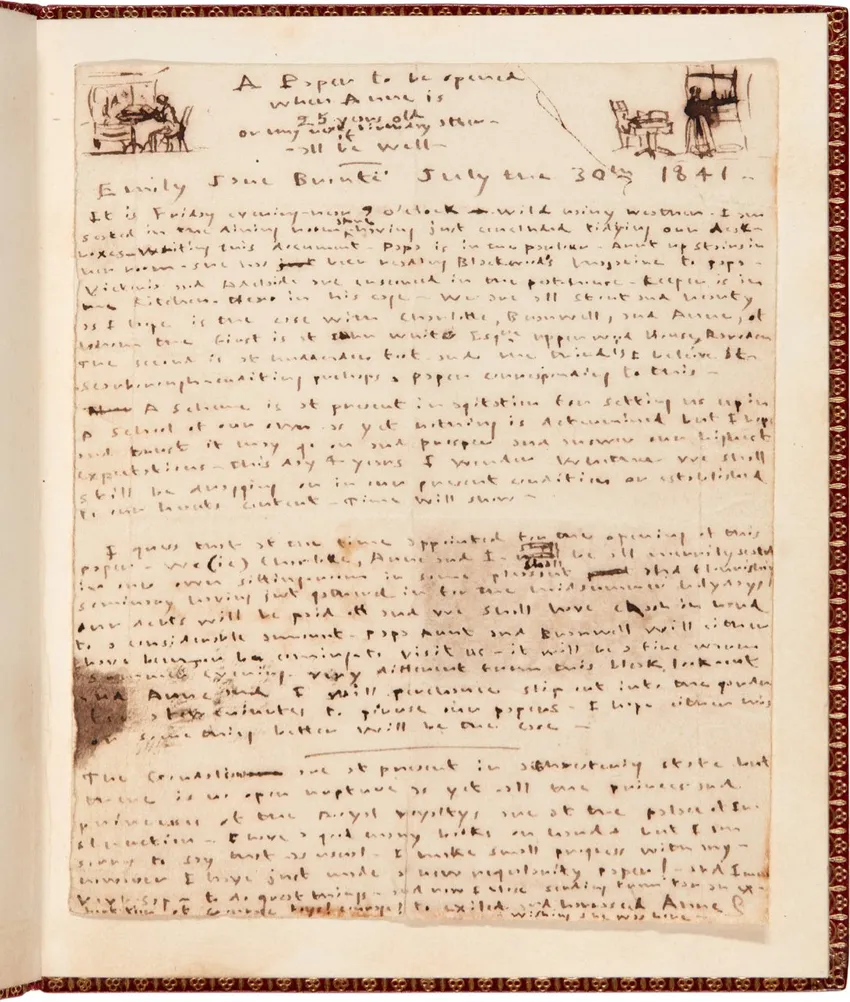 A Paper to be opened
when Anne is
25 years old
or my next birthday after—
if
—all be well—
Emily Jane Brontë July the 30th 1841.
It is Friday evening—near 9 o'clock—wild rainy weather I am
seated in the dining room alone having just concluded tidying our desk-
boxes—writing this document—Papa is in the parlour. Aunt up stairs in
her room—she has just been reading Blackwood's Magazine to papa—
Victoria and Adelaide are ensconced in the peat-house—Keeper is in
the Kitchen—Hero in his cage—We are all stout and hearty
as I hope is the case with Charlotte, Branwell, and Anne, of
whom the first is at John White Esqre upperwood House, Rawden
The second is at Luddenden foot and the third is I beleive at
Scarborough—enditing perhaps a paper corresponding to this—
A Scheme is at present in agitation for setting us up in
A School of our own as yet nothing is determined but I hope
and trust it may go on and prosper and answer our highest
expectations. This day 4-years I wonder whether we shall
still be dragging on in our present condition or established
to our hearts content—Time will show—
I guess that at the time appointed for the opening of this
paper—we (ie) Charlotte, Anne and I—shall be all merrily seated
in our own sitting-room in some pleasant and flourishing
seminary having just gathered in for the midsummer holydays
our debts will be paid off and we shall have cash in hand
to a considerable amount. papa Aunt and Branwell will either
have been—or be coming—to visit us—it will be a fine warm
summery evening. very different from this bleak look-out
and Anne and I will perchance slip out into the garden
for a few minutes to peruse our papers. I hope either this
or something better will be the case—
The Gondalians are at present in a threatening state but
there is no open rupture as yet—all the princes and
princesses of the royal royaltys are at the palace of In-
struction—I have a good many books on hand but I am
sorry to say that as usual—I make small progress with any—
however I have just made a new regularity paper! and I mean
verb sap—to do great things—and now I close sending from far an ex-
hortation of courage, courage! to exiled and harassed Anne
wishing she was here